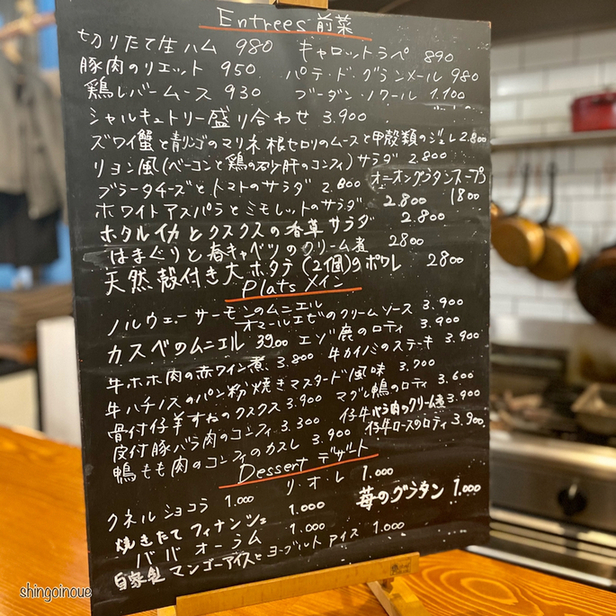 Entrees 前菜
切りたて生ハム 980 キャロットラペ 890
豚肉のリエット 950 パテ・ド・グランメール 980
鶏レバームース 930 ブーダン・ノワール 1.100
シャルキュトリー盛り合わせ 3.900
ズワイ蟹と青リンゴのマリネ 根セロリのムースと甲殻類のジュレ 2.800
リヨン風(ベーコンと鶏の砂肝のコンフィ)サラダ 2.800
ブラータチーズとトマトのサラダ 2.800 オニオングラタンスープ 1800
ホワイトアスパラとミモレットのサラダ 2.800
ホタルイカとクスクスの香草サラダ 2.800
はまぐりと春キャベツのクリーム煮 2800
天然殻付き大ホタテ(2個)のポワレ 2800
Plats メイン
ノルウェーサーモンのムニエル オマールエビのクリームソース 3.900
カスベのムニエル 3900 エゾ鹿のロティ 3.900
牛ホホ肉の赤ワイン煮 3.800 牛カイノミのステーキ 3.900
牛ハチノスのパン粉焼きマスタード風味 3.700
骨付仔羊すねのクスクス 3.900 マグレ鴨のロティ 3.600
皮付豚バラ肉のコンフィ 3.300 仔牛バラ肉のクリーム煮 3.900
鴨もも肉のコンフィのカスレ 3.900 仔牛ロースのロティ 3.900
Dessert デザート
クネル ショコラ 1.000 リ・オ・レ 1.000
焼きたて フィナンシェ 1.000 苺のグラタン 1.000
ババ オーラム 1.000
自家製 マンゴーアイスとヨーグルトアイス 1.000
shingoinoue